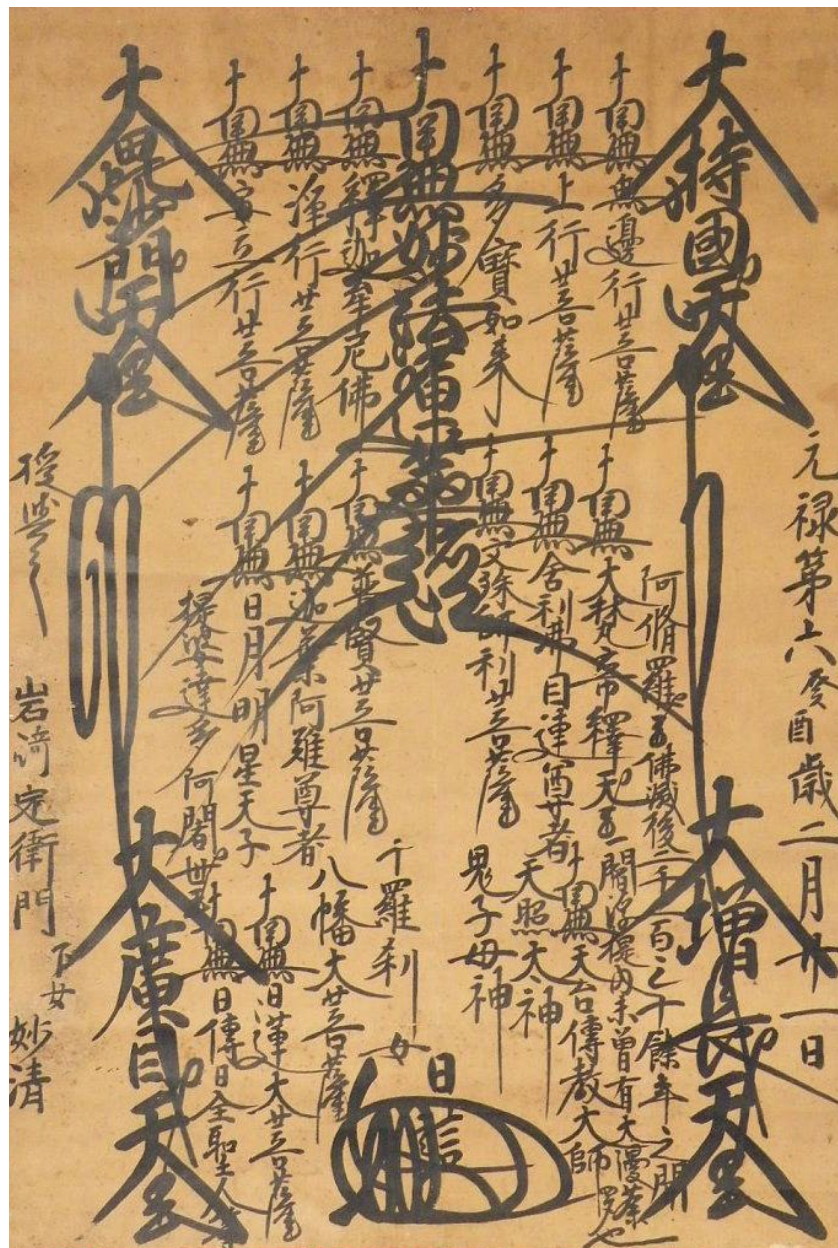 元禄第六癸酉歳二月廿一日
大持國天王
南無無邊行菩薩
南無上行菩薩
南無多寶如来
南無妙法蓮華経
南無釋迦牟尼佛
南無淨行菩薩
南無安立行菩薩
大毘沙門天王
阿脩羅王
南無大梵帝釋天王
南無舎利弗目連尊者
南無文殊師利菩薩
南無普賢菩薩
南無迦葉阿難尊者
南無日月明星天子
提婆達多 阿闍世王
大増長天王
佛滅後二千二百三十餘年之間
一閻浮提内未曾有大漫荼羅也
南無天台傳教大師
天照太神
鬼子母神
十羅刹女
八幡大菩薩
南無日蓮大菩薩
南無日傳日全聖人等
大廣目天王
日
授與之
岩﨑定衛門 下女 妙清